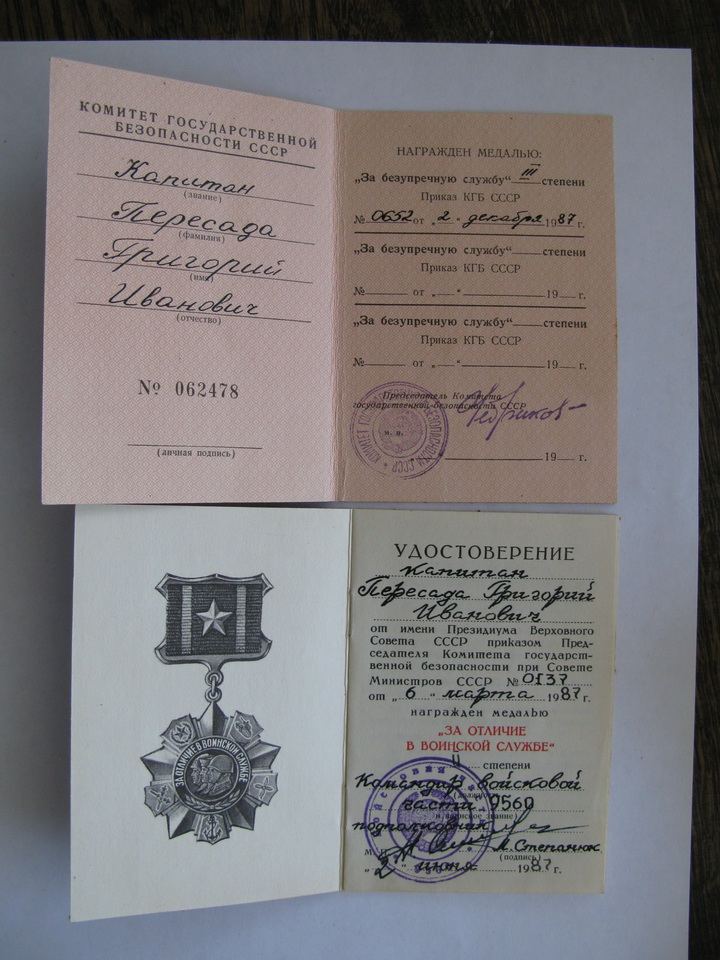 КОМИТЕТ ГОСУДАРСТВЕННОЙ
БЕЗОПАСНОСТИ СССР
Капитан
(звание)
Пересада
(фамилия)
Григорий
(имя)
Иванович
(отчество)
№ 062478
(личная подпись)
НАГРАЖДЕН МЕДАЛЬЮ:
„За безупречную службу“ III степени
Приказ КГБ СССР
№ 0652 от „2“ декабря 1987 г.
„За безупречную службу“ степени
Приказ КГБ СССР
№ от „ “ 19 г.
„За безупречную службу“ степени
Приказ КГБ СССР
№ от „ “ 19 г.
Председатель Комитета
государственной безопасности СССР
м. п.
19 г.
ЗА ОТЛИЧИЕ В ВОИНСКОЙ СЛУЖБЕ
УДОСТОВЕРЕНИЕ
капитан
Пересада Григорий
Иванович
от имени Президиума Верховного
Совета СССР приказом Пред-
седателя Комитета государст-
венной безопасности при Совете
Министров СССР № 0137
от „6“ марта 1987 г.
награжден медалью
„ЗА ОТЛИЧИЕ
В ВОИНСКОЙ СЛУЖБЕ“
II степени
Командир войсковой
части 9560
подполковник
А. Степанюк
М. П. (подпись)
„2“ июня 1987 г.